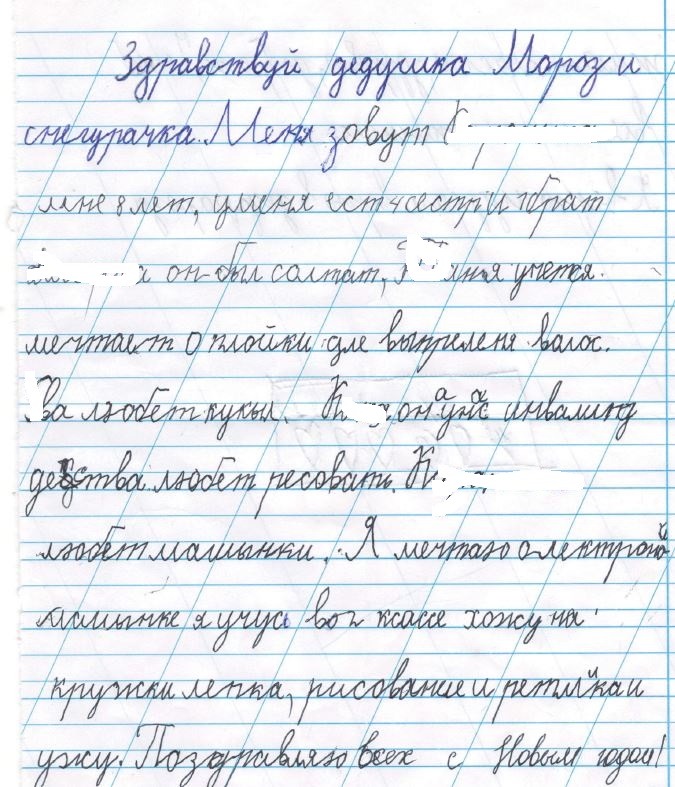 Здравствуй дедушка Мороз и
снегурачка. Меня зовут
мне 8 лет, уменя ест 4 сестри 1 брат
он был солтат, учется.
мечтает о плойки дле выпреленя валос.
любет кукыл. он а у нас инвалинд
детства любет ресовать.
любет машынки. Я мечтаю о лектроной
машынке я учус во 2 классе хожу на
кружки лепка, рисование и
ужу. Поздравляю всех с Новым годом!